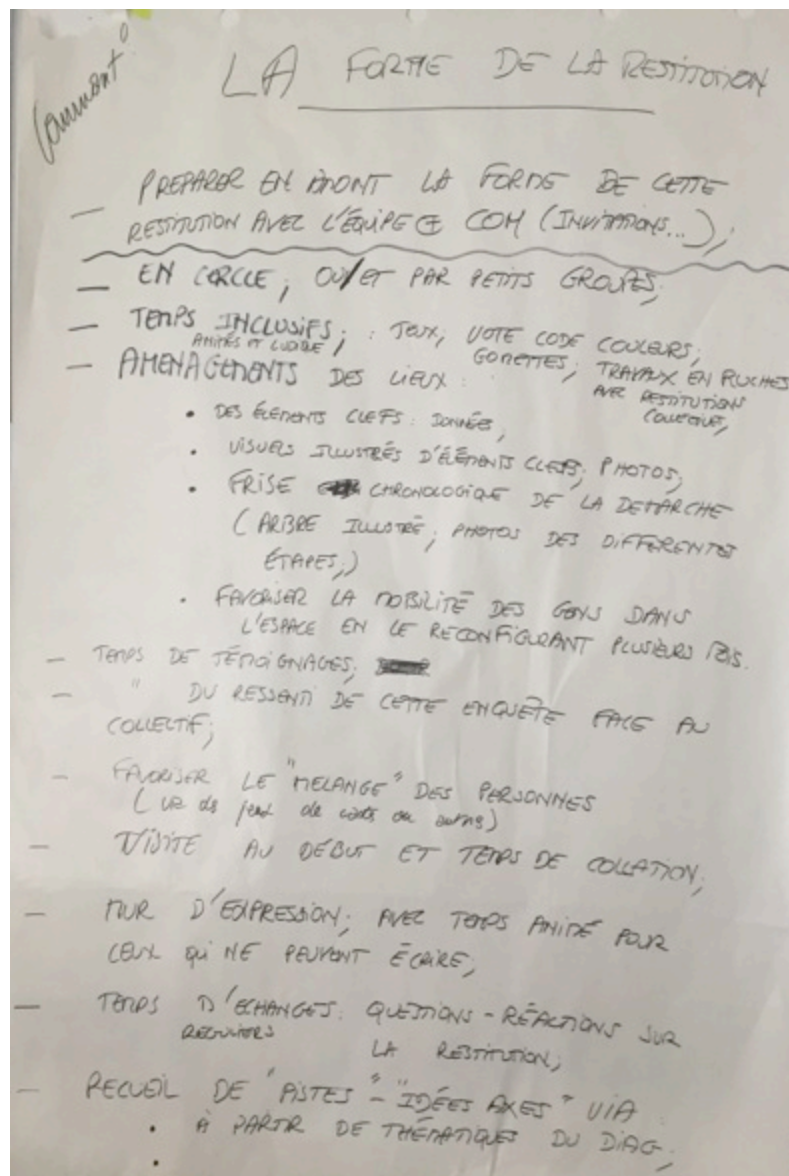 Comment?
LA FORME DE LA RESTITUTION
— PREPARER EN AMONT LA FORME DE CETTE
RESTITUTION AVEC L'ÉQUIPE ET COM (INVITATIONS...);
— EN CERCLE; OU/ET PAR PETITS GROUPES;
— TEMPS INCLUSIFS; : JEUX; VOTE CODE COULEURS;
ANIMÉS ET LUDIQUE; GOMETTES; TRAVAUX EN RUCHES
AVEC RESTITUTIONS
COLLECTIVES,
— AMENAGEMENTS DES LIEUX :
• DES ÉLEMENTS CLEFS : DONNÉES,
• VISUELS ILLUSTRÉS D'ÉLÉMENTS CLEFS; PHOTOS;
• FRISE CHRONOLOGIQUE DE LA DEMARCHE
(ARBRE ILLUSTRÉ; PHOTOS DES DIFFERENTES
ÉTAPES;)
• FAVORISER LA MOBILITÉ DES GENS DANS
L'ESPACE EN LE RECONFIGURANT PLUSIEURS FOIS.
— TEMPS DE TÉMOIGNAGES;
— " DU RESSENTI DE CETTE ENQUÊTE FACE AU
COLLECTIF;
— FAVORISER LE "MELANGE" DES PERSONNES
( de jeux de cartes ou autres)
— VISITE AU DÉBUT ET TEMPS DE COLLATION;
— MUR D'EXPRESSION; AVEC TEMPS ANIMÉ POUR
CEUX QUI NE PEUVENT ÉCRIRE;
— TEMPS D'ECHANGES: QUESTIONS - RÉACTIONS SUR
REGULIERS LA RESTITUTION;
— RECUEIL DE "PISTES" - "IDÉES AXES" VIA :
• À PARTIR DE THÉMATIQUES DU DIAG;
•